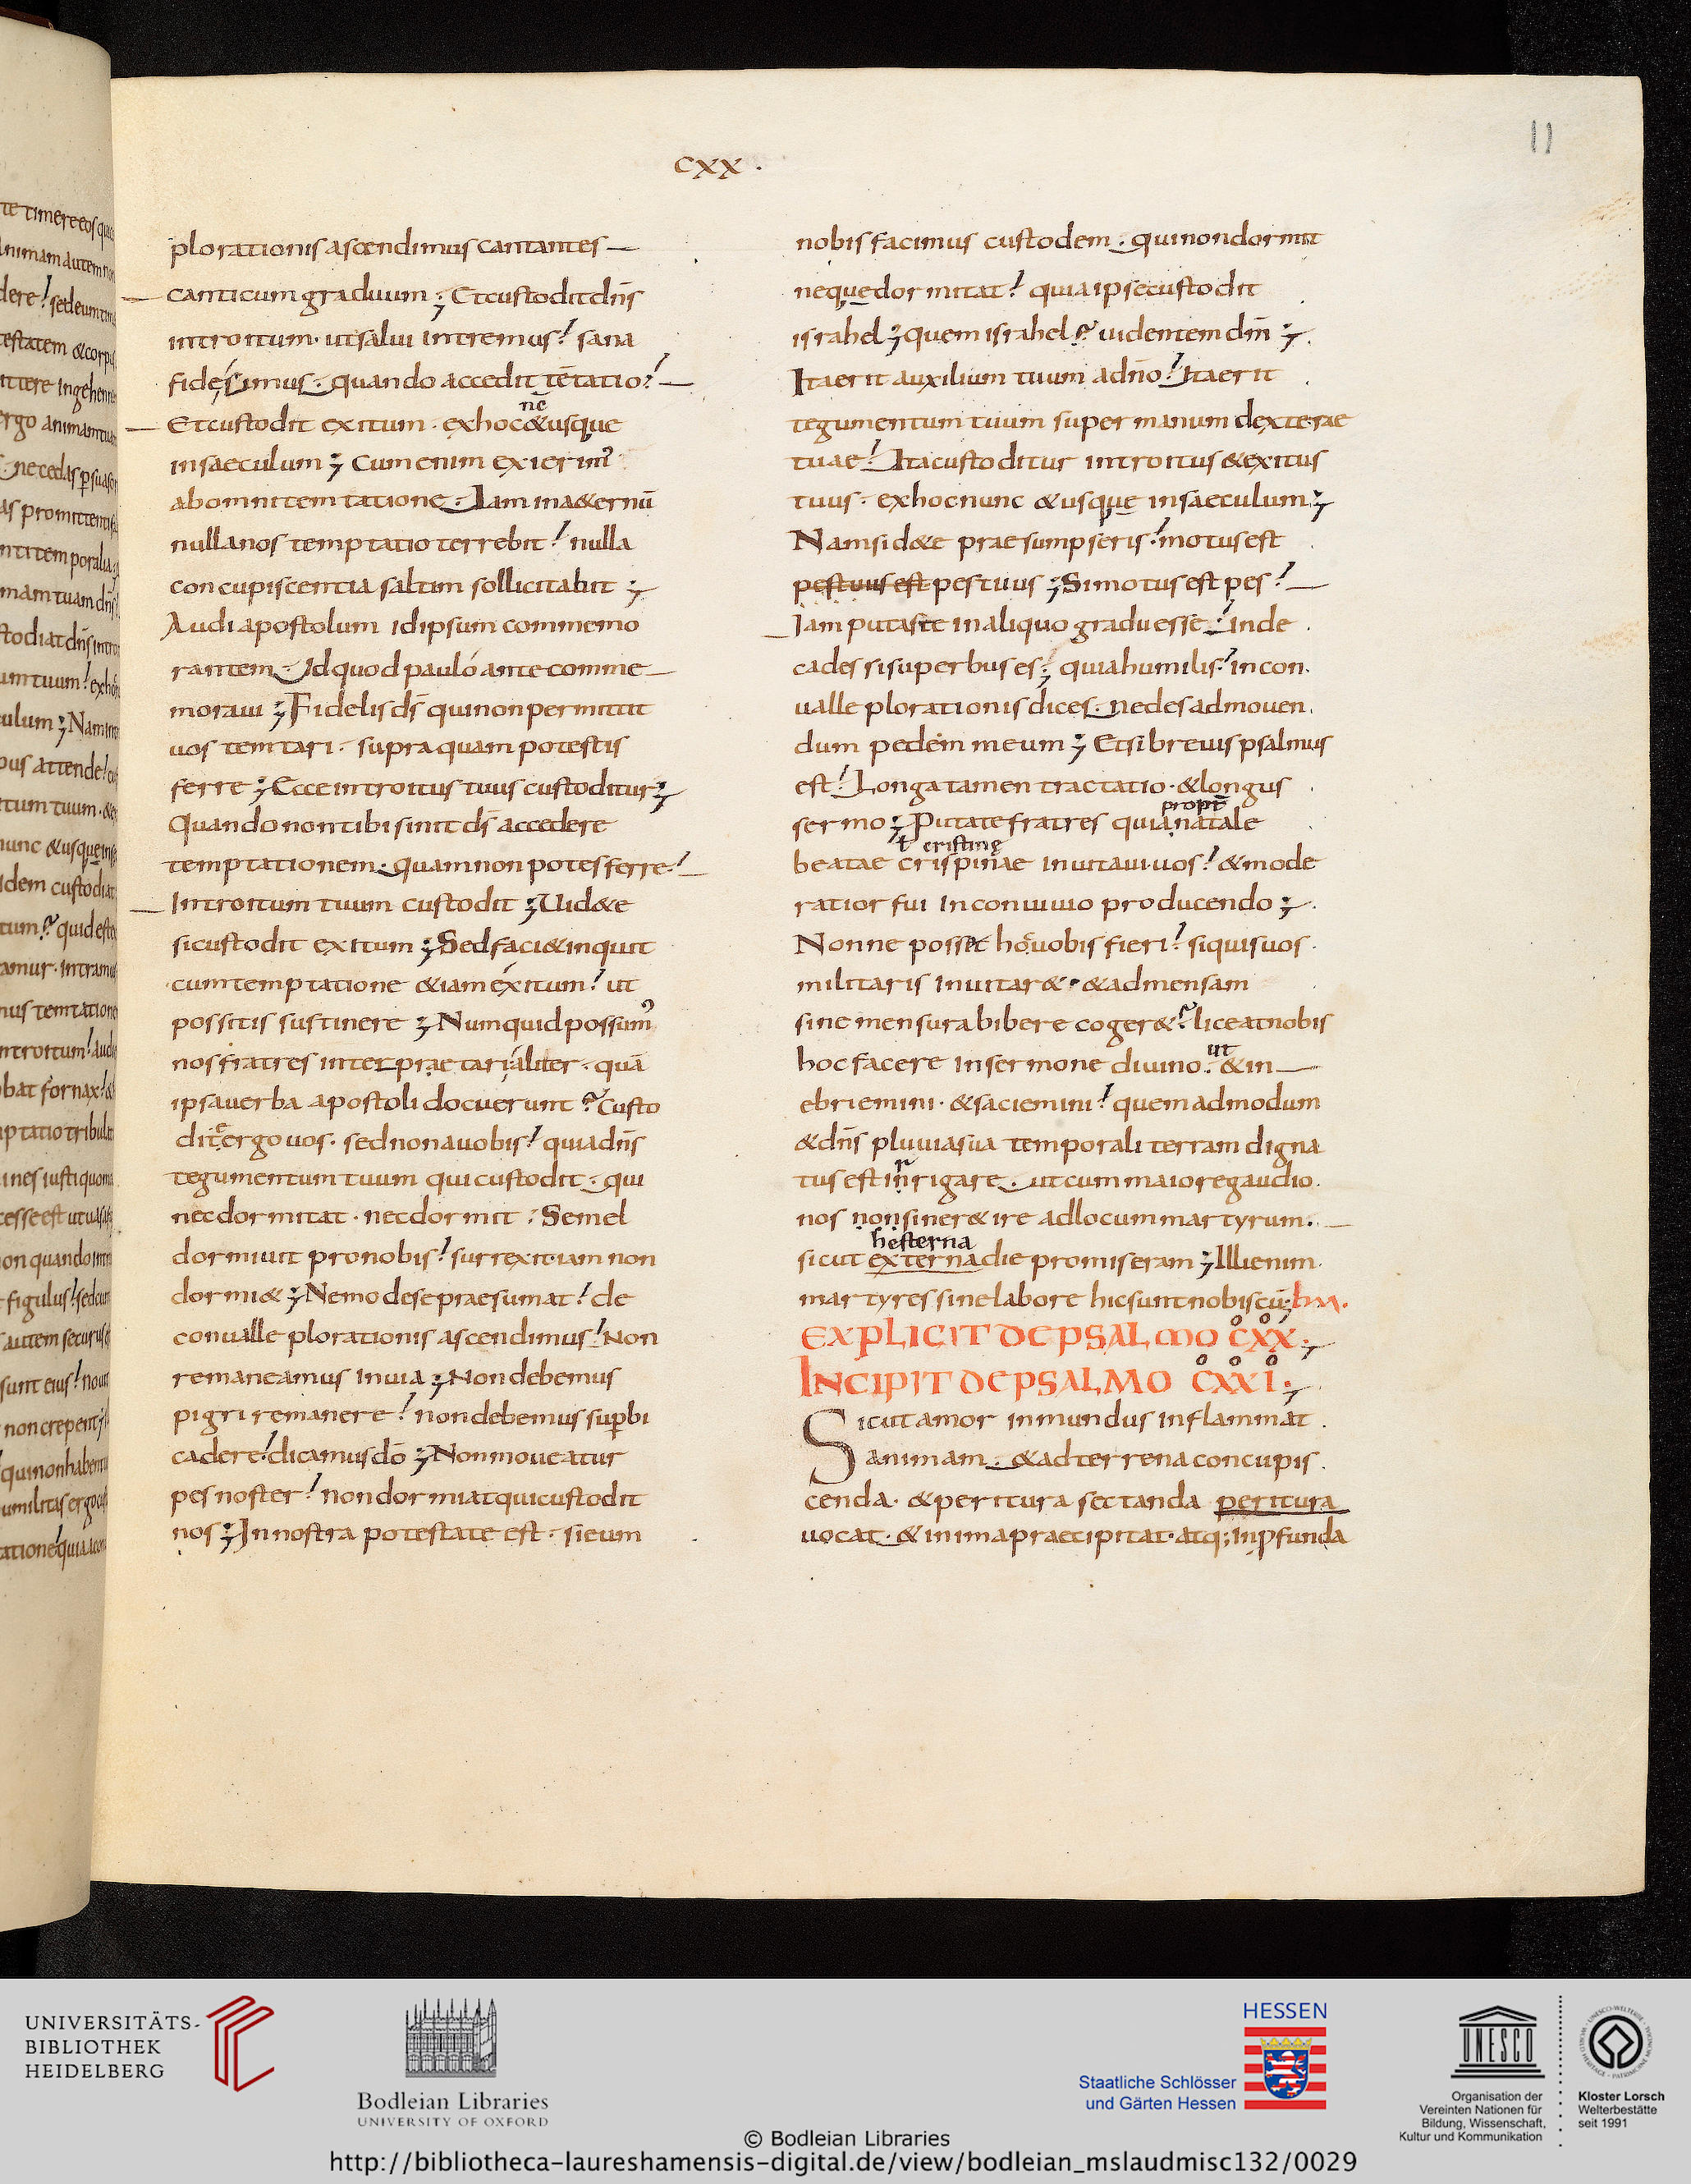 CXX ·
11
plorationis ascendimus cantantes
canticum graduum ; Et custodit dn̄s
introitum · ut salui intremus ! sana
fide simus · quando accedit tētatio !
Et custodit exitum · ex hoc & usque
nc̄
in saeculum ; Cum enim exierim᾽
ab omni temtatione · Iam in a&ernū
nulla nos temptatio terrebit ! nulla
concupiscentia saltim sollicitabit ;
Audi apostolum id ipsum commemo
rantem · Id quod pauló ante comme
moraui ; Fidelis ds̄ qui non permittit
uos temtari · supra quam potestis
ferre ; Ecce introitus tuus custoditur ;
Quando non tibi sinit ds̄ accedere
temptationem · quam non potes ferre !
Introitum tuum custodit ; Uid&e
si custodit exitum ; Sed faci& inquit
cum temptatione &iam éxitum ! ut
possitis sustinere ; Numquid possum᾽
nos fratres interpraetari aliter · quā
ipsa uerba apostoli docuerunt ? Custo
dit᾽ ergo uos · sed non a uobis ! quia dn̄s
tegumentum tuum qui custodit · qui
nec dormitat · nec dormit : Semel
dormiuit pro nobis ! surrexit · iam non
dormi& ; Nemo de se praesumat ! de
conualle plorationis ascendimus ! Non
remaneamus in uia ; Non debemus
pigri remanere ! non debemus sup̄bi
cadere ! dicamus dō ; Non moueatur
pes noster ! non dormiat qui custodit
nos ; In nostra potestate est · si eum
nobis facimus custodem · qui non dormit
neque dormitat ! quia ipse custodit
israhel ; quem israhel ? uidentem dm̄ ;
Ita erit auxilium tuum a dn̄o ! Ita erit
tegumentum tuum super manum dexterae
tuae ! Ita custoditur introitus & exitus
tuus · ex hoc nunc & usque in saeculum ;
Nam si d&e praesumpseris ! motus est
pes tuus est pes tuus ; Si motus est pes !
Iam putas te in aliquo gradu esse · inde
cades si superbus es ; quia humilis ! in con
ualle plorationis dices · ne des ad mouen
dum pedem meum ; Etsi breuis psalmus
est ! Longa tamen tractatio · & longus
propt̄
sermo ; Putate fratres quia natale
ł cristine
beatae crispinae inuitaui uos ! & mode
ratior fui in conuiuio producendo ;
Nonne posset hoc uobis fieri ! si quis uos
militaris inuitar& · & ad mensam
sine mensura bibere coger& ? liceat nobis
ut
hoc facere in sermone diuino · & in
ebriemini · & saciemini ! quemadmodum
& dn̄s pluuia sua temporali terram digna
r
tus est inrigare · ut cum maiore gaudio
nos non siner& ire ad locum martyrum ·
hesterna
sicut externa die promiseram ; Illi enim
martyres sine labore hic sunt nobiscū ;
EXPLICIT DE PSALMO CXX ;
INCIPIT DE PSALMO CXXI ;
Sicut amor inmundus inflammat
animam · & ad terrena concupis
cenda · & peritura sectanda peritura
uocat · & in ima praecipitat · atq; in p̄funda
UNIVERSITÄTS-
BIBLIOTHEK
HEIDELBERG
Bodleian Libraries
UNIVERSITY OF OXFORD
HESSEN
Staatliche Schlösser
und Gärten Hessen
UNESCO
Organisation der
Vereinten Nationen für
Bildung, Wissenschaft,
Kultur und Kommunikation
Kloster Lorsch
Welterbestätte
seit 1991
© Bodleian Libraries
http://bibliotheca-laureshamensis-digital.de/view/bodleian_mslaudmisc132/0029